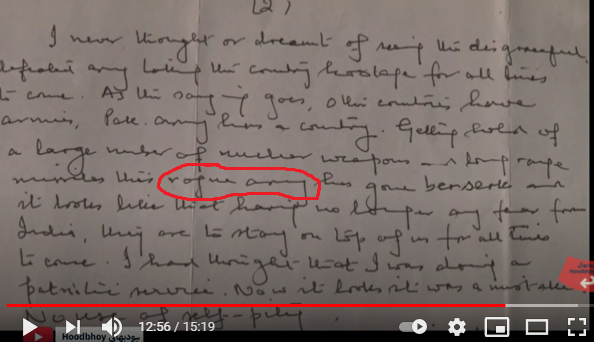 (2)
I never thought or dreamt of seeing this disgraceful
defeated army taking the country hostage for all times
to come. As the saying goes, other countries have
armies, Pak. army has a country. Getting hold of
a large number of nuclear weapons and long range
missiles this rogue army has gone berserk and
it looks like that having no longer any fear from
India, they are to stay on top of us for all times
to come. I had thought that I was doing a
patriotic service. Now it looks it was a mistake
No use of self-pity.
12:56 / 15:19
Hoodbhoy